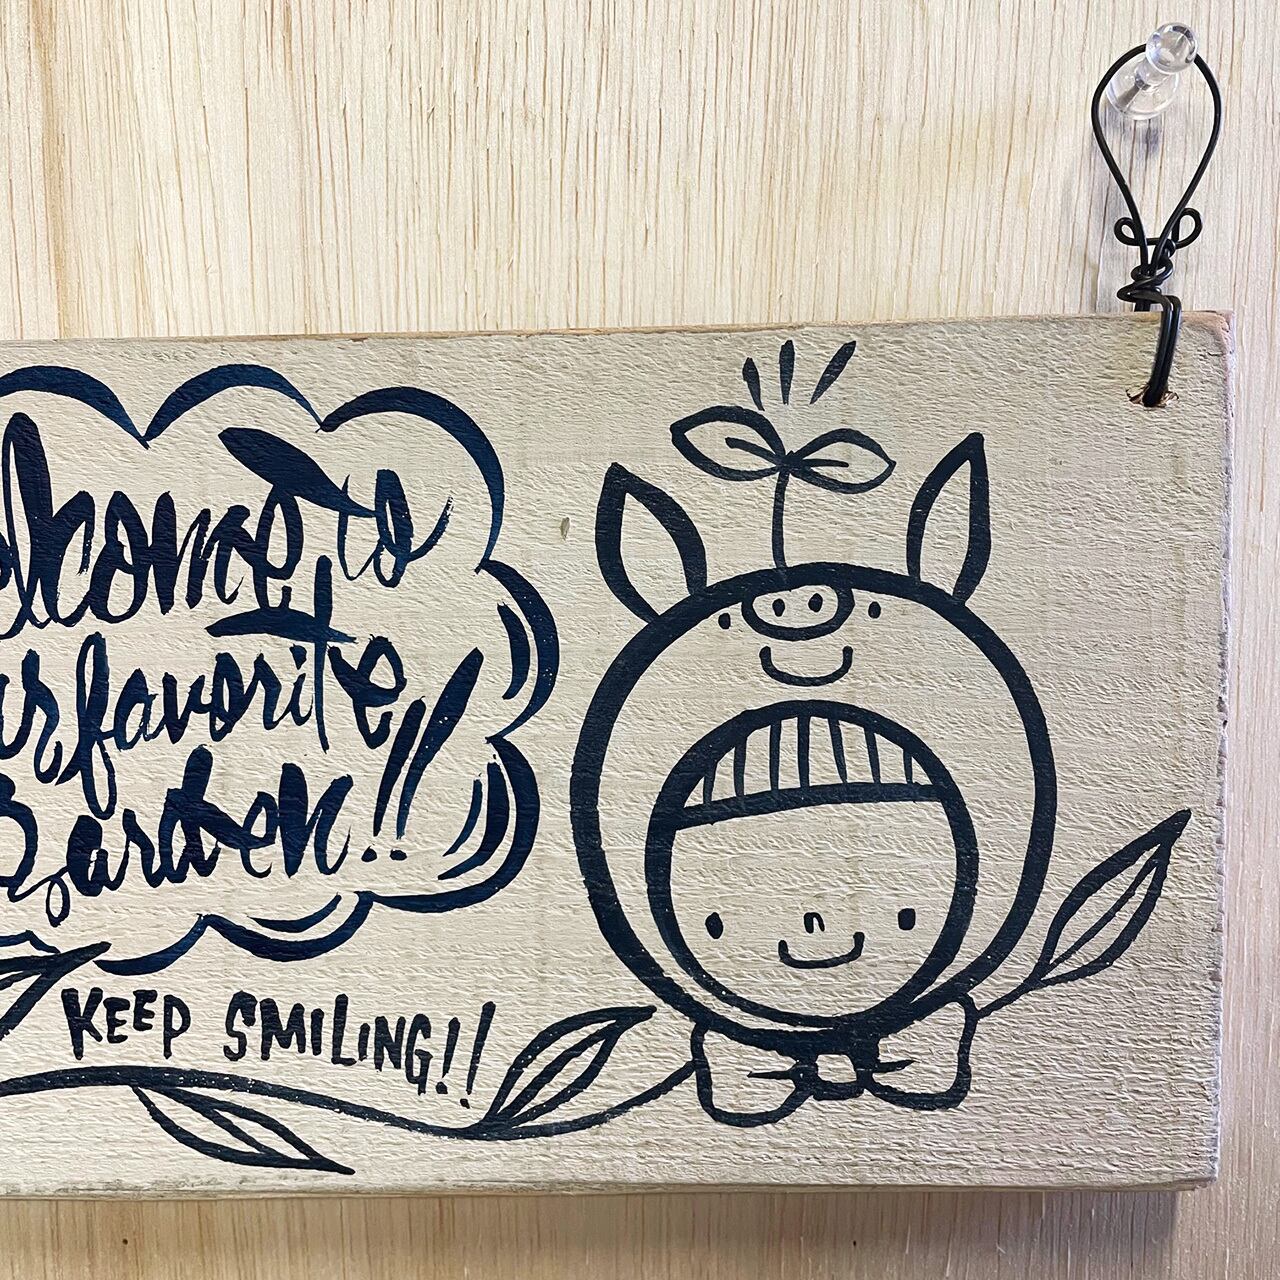 elcome to
ur favorite!!
Garden!!
KEEP SMILING!!